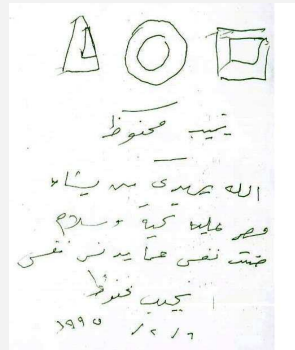 نجيب محفوظ
الله يهدى من يشاء
مصر عليها تحية وسلام
صنت نفسى عما يدنس نفسى
نجيب محفوظ
١٩٩٥ /٢/٦